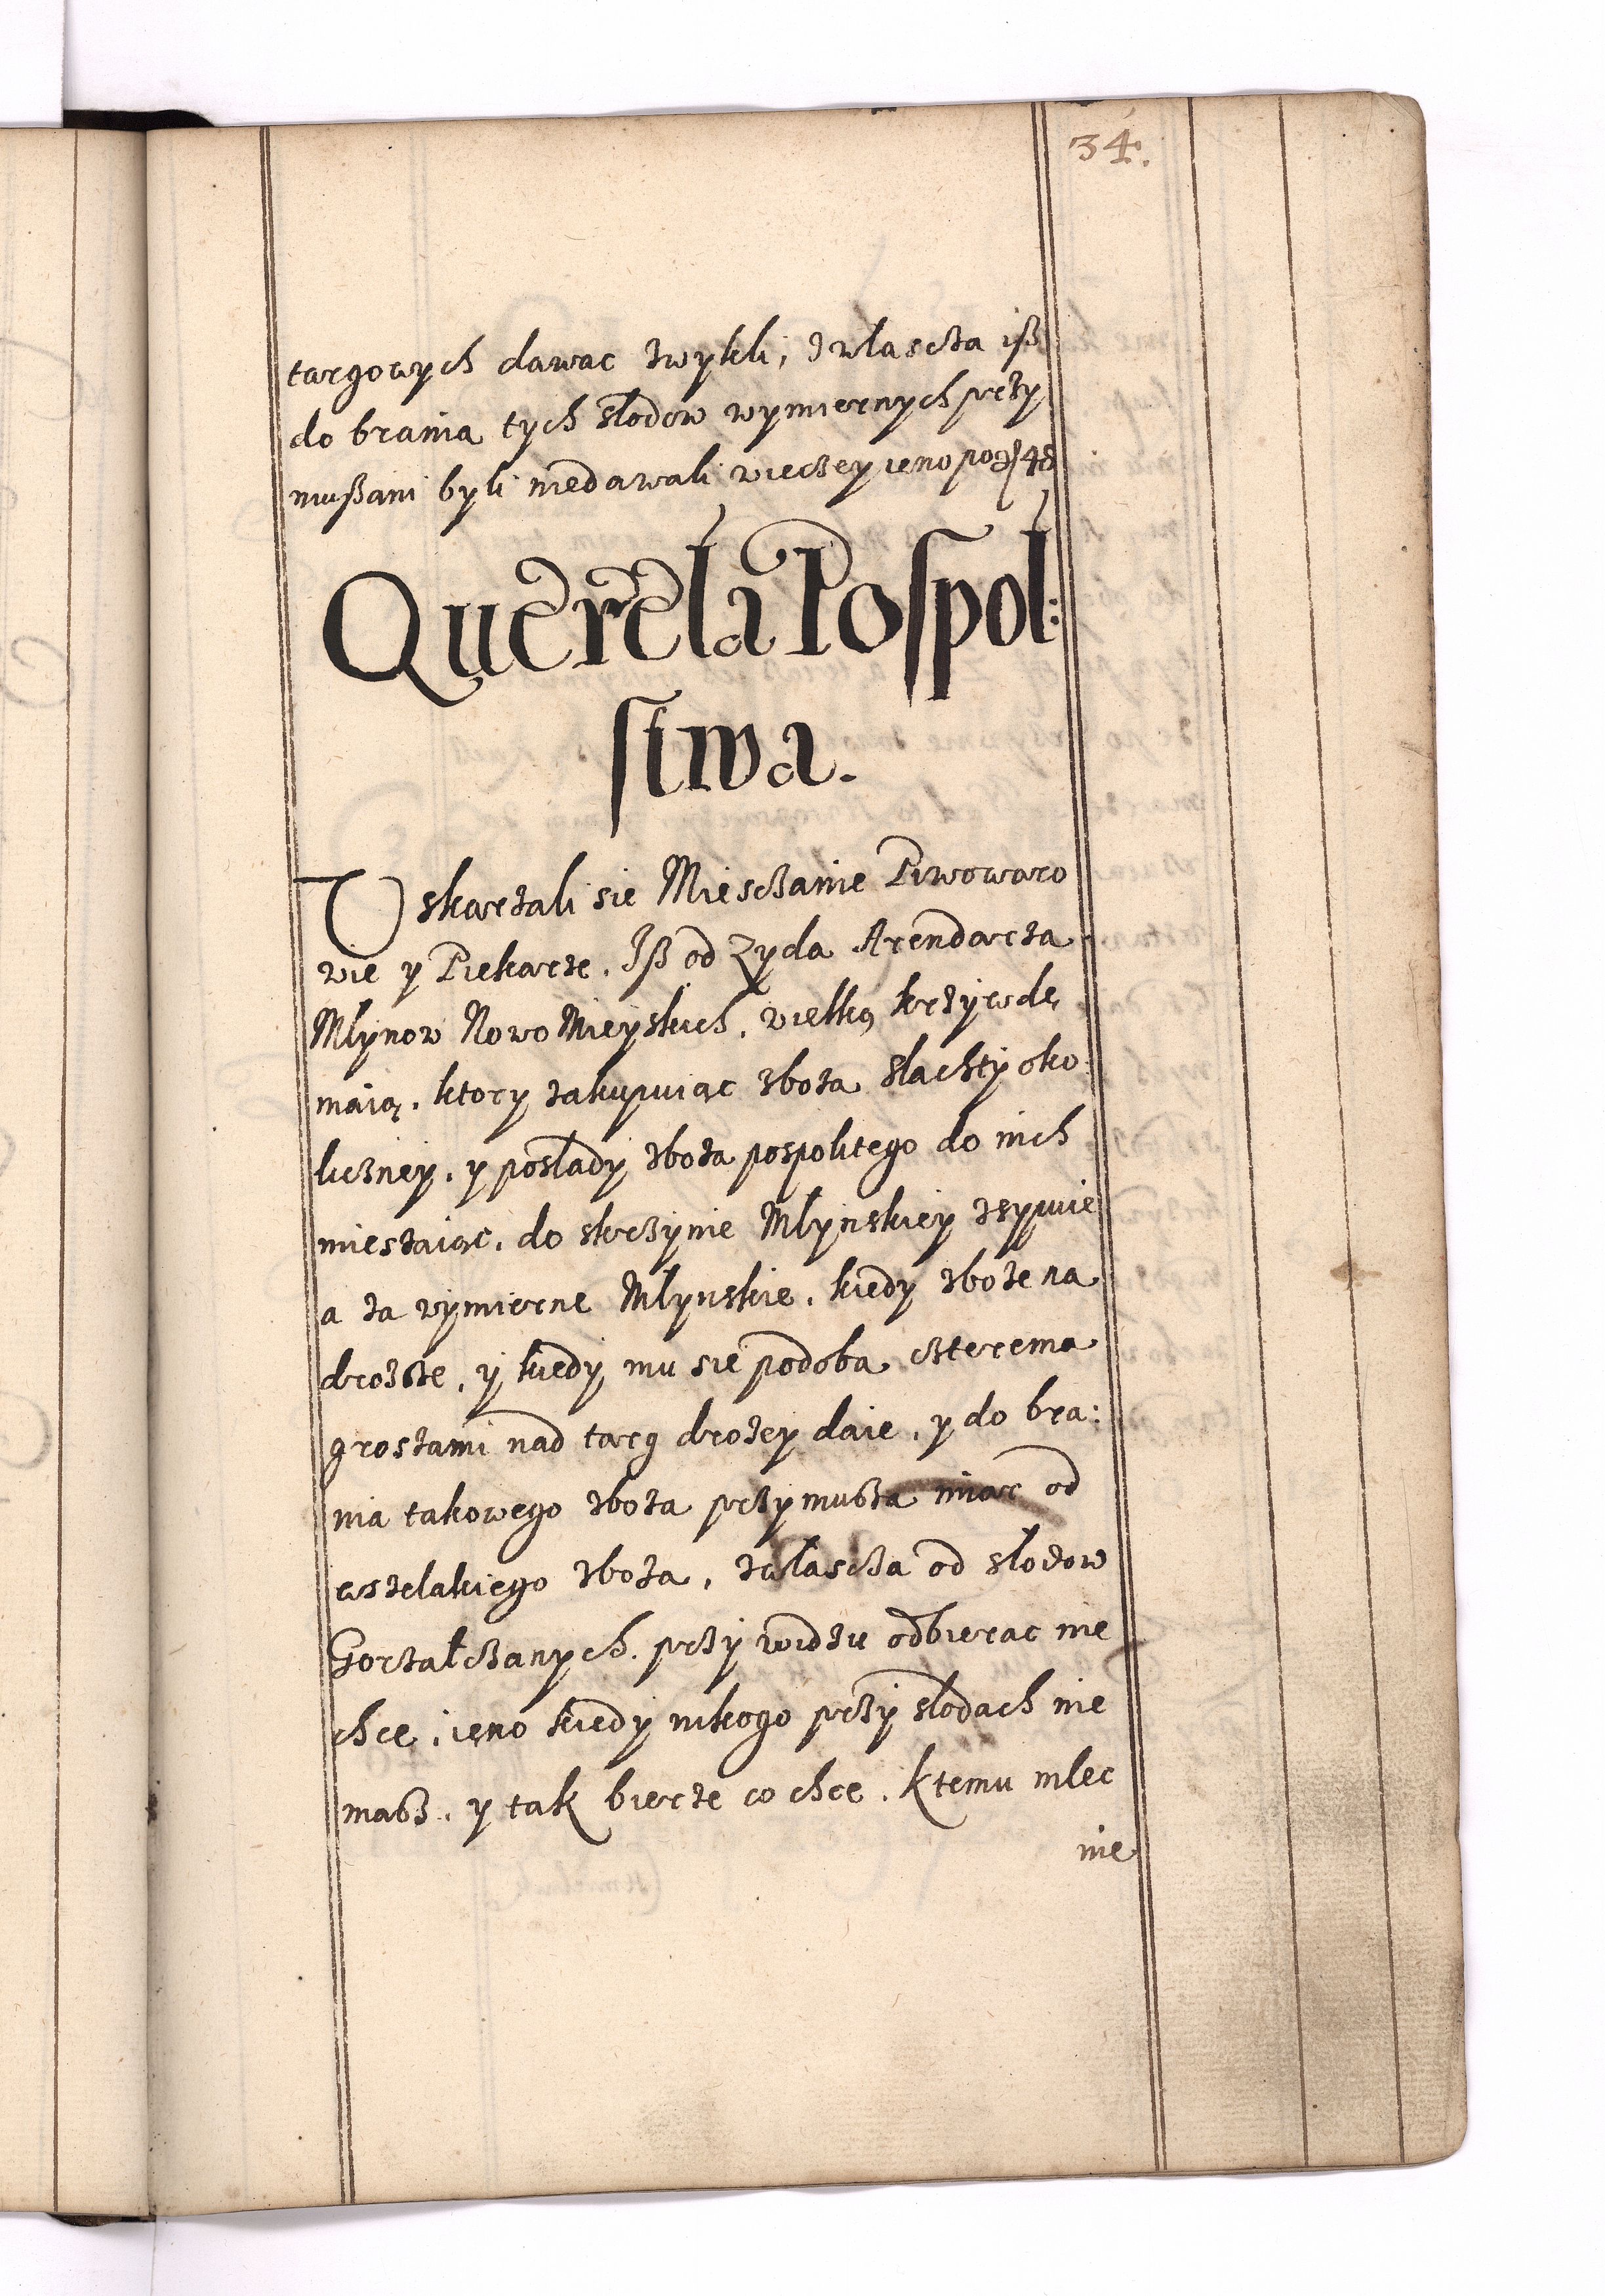 34.
targowych dawac zwykli, zwlascza iß
do brania tych słodow wymiernych przy
mußani byli niedawali wieczey ieno po
Querela Pospol:
stwa.
Uskarzali sie Miesczanie Piwowaro
wie y Piekarze. Iß od Zyda Arendarza
Mlynow Nowo Mieyskich. wielką krzywdę
maią. ktory zakupuiąc zboza slachty oko
liczney. y poslady zboza pospolitego do nich
mieszaiąc. do skrzynie Mlynskiey zsypuie
a za wymierne Mlynskie. kiedy zboze na
drozsze, y kiedy mu sie podoba czterema
groszami nad targ drozey daie. y do bra:
nia takowego zboza przymusza miar od
wszelakiego zboza. zwlascza od słodow
Gorzałczanych. przy widzu odbierac nie
chce. ieno kiedy nikogo przy słodach nie
masz. y tak bierze co chce. Ktemu mlec
nie